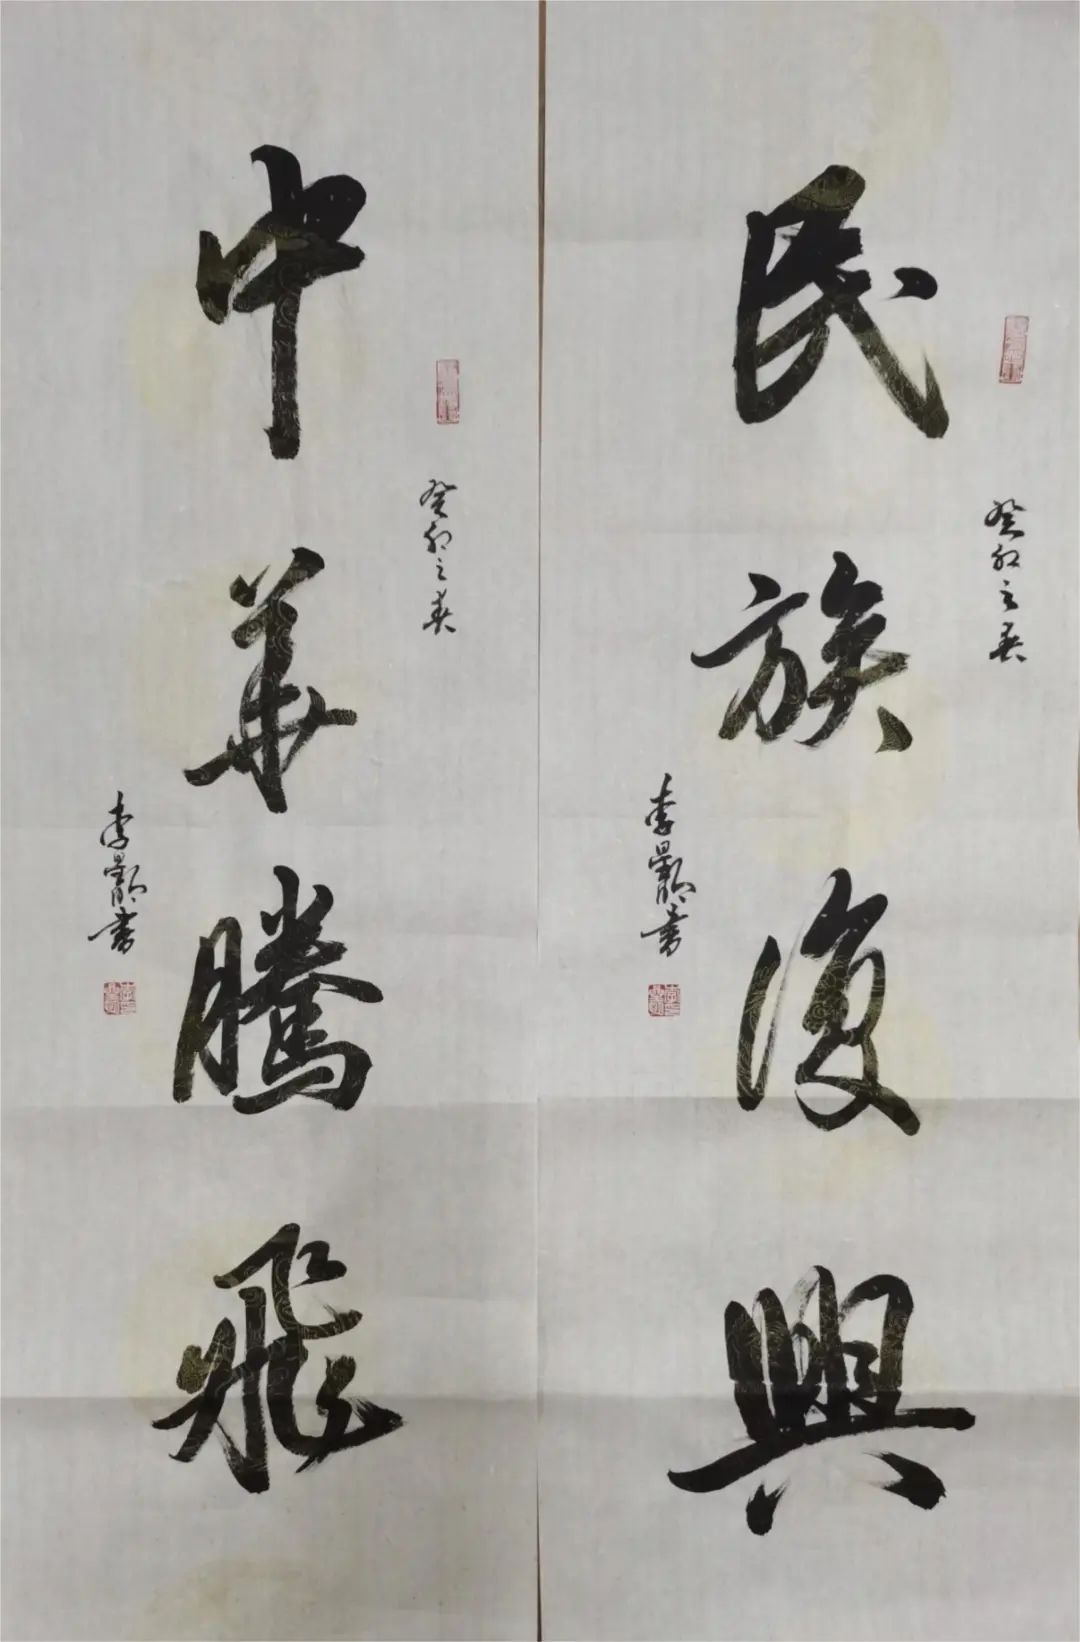 癸卯之春
民族復興
李書
癸卯之春
中華騰飛
李書